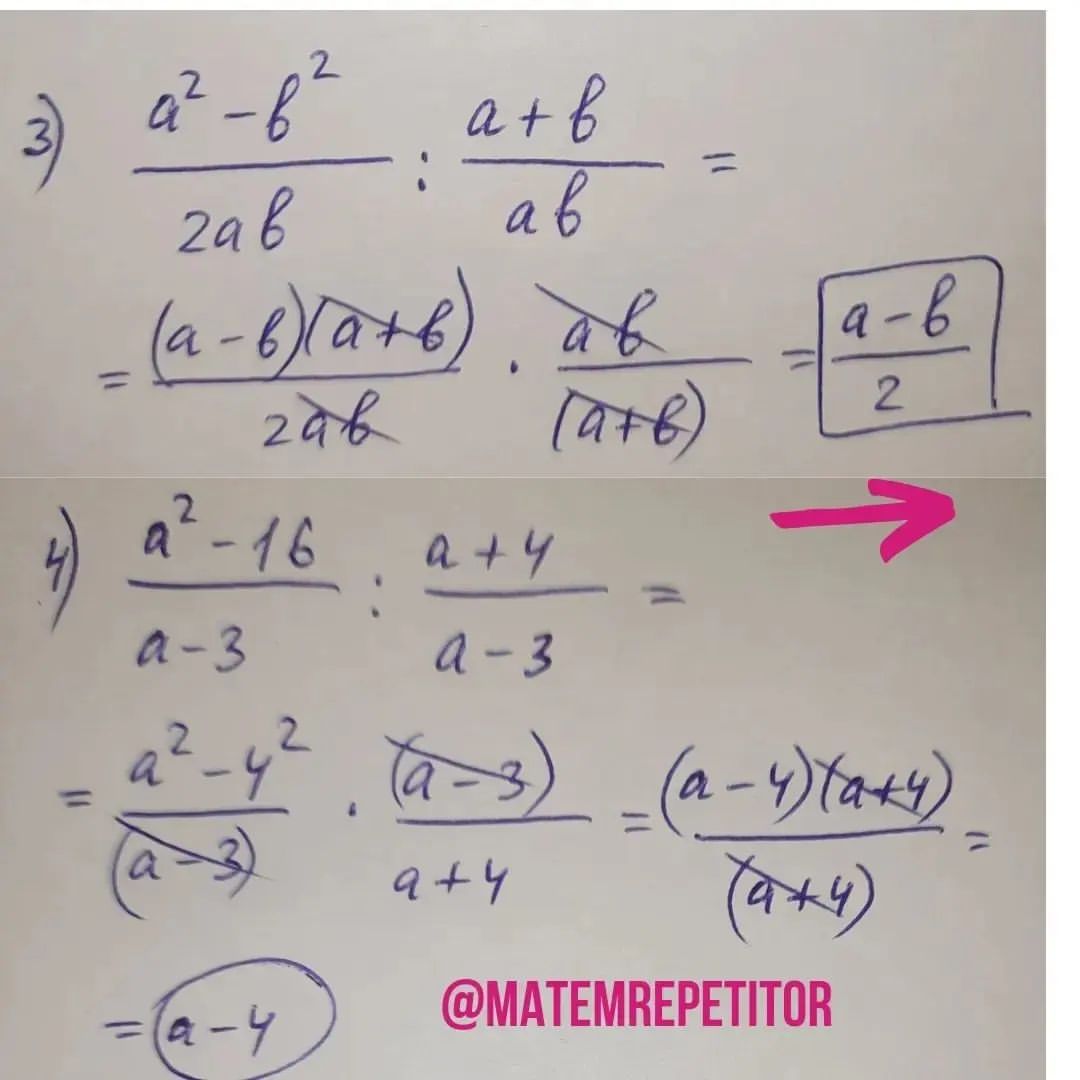 3) \frac{a² - b²}{2ab} : \frac{a + b}{ab} =
= \frac{(a - b)(a + b)}{2ab} · \frac{ab}{(a + b)} = \frac{a - b}{2}
4) \frac{a² - 16}{a - 3} : \frac{a + 4}{a - 3} =
= \frac{a² - 4²}{(a - 3)} · \frac{(a - 3)}{a + 4} = \frac{(a - 4)(a + 4)}{(a + 4)} =
= a - 4
@MATEMREPETITOR